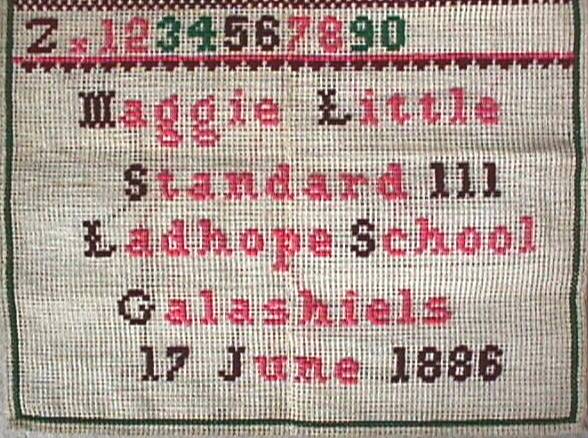 Z x 1234567890
Maggie Little
Standard 111
Ladhope School
Galashiels
17 June 1886